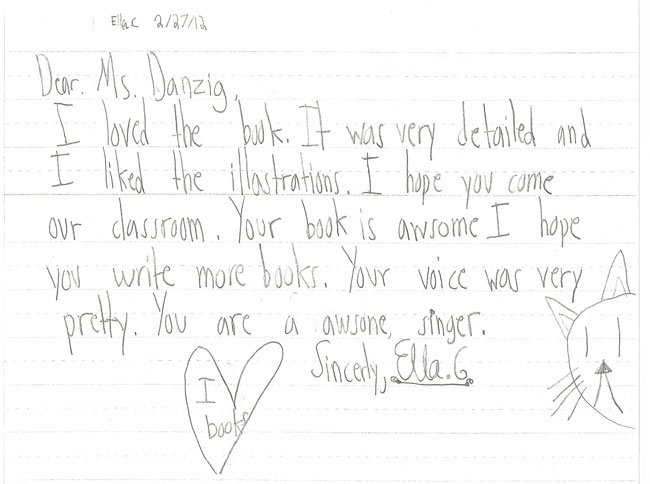 Ella C 2/27/12
Dear. Ms. Danzig,
I loved the book. It was very detailed and
I liked the illastrations. I hope you come
our classroom. Your book is awsome I hope
you write more books. Your voice was very
pretty. You are a awsone, singer.
Sincerly, Ella.C
I
books